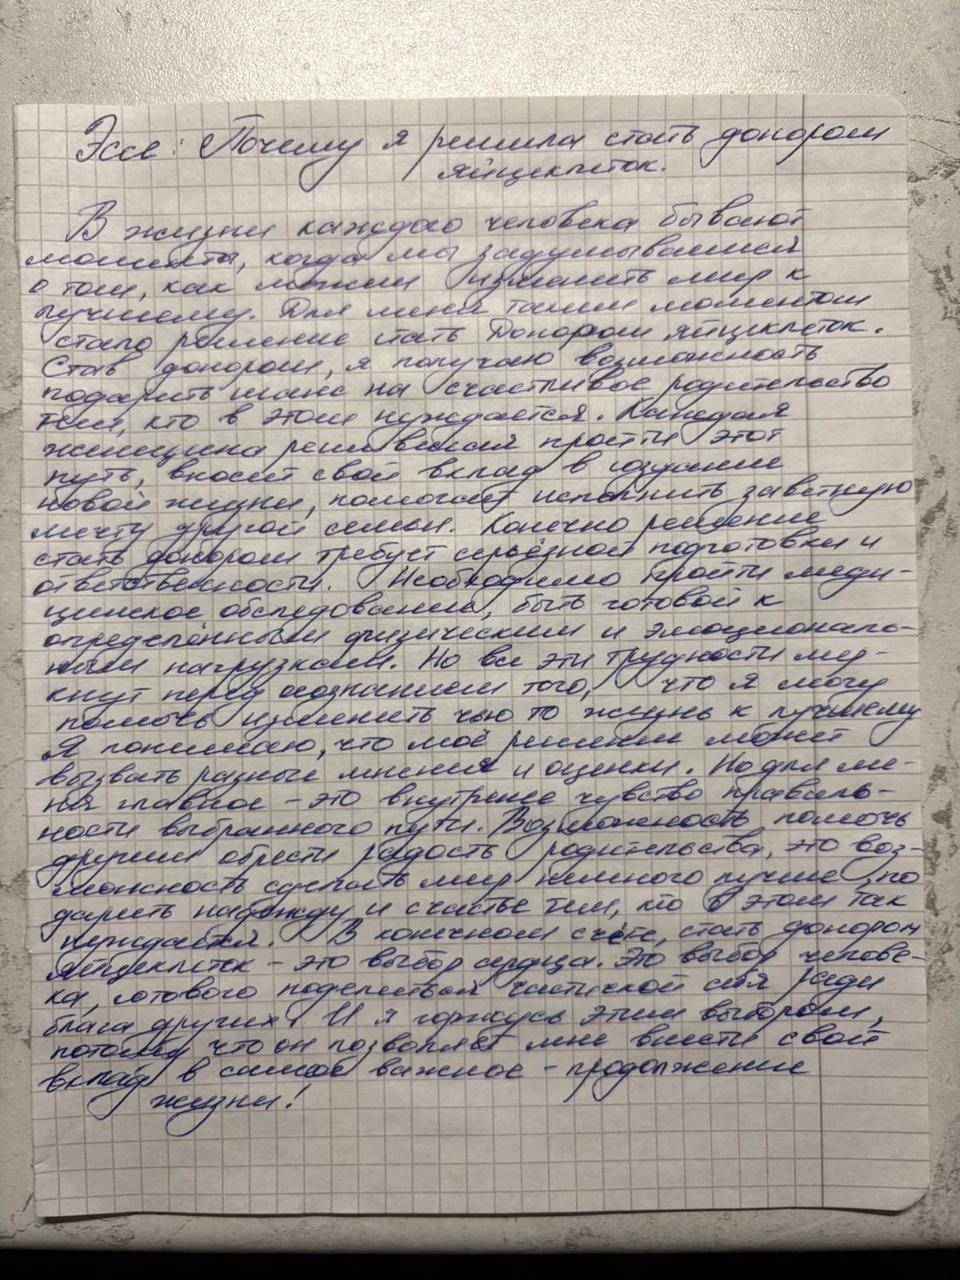 Эссе: Почему я решила стать донором
яйцеклеток.
В жизни каждого человека бывают
моменты, когда мы задумываемся
о том, как можем изменить мир к
лучшему. Для меня таким моментом
стало решение стать Донором яйцеклеток.
Став донором, я получаю возможность
подарить шанс на счастливое родительство
тем, кто в этом нуждается. Каждая
женщина решившая пройти этот
путь, вносит свой вклад в создание
новой жизни, помогает исполнить заветную
мечту другой семьи. Конечно решение
стать донором требует серьёзной подготовки и
ответственности. Необходимо пройти меди-
цинское обследование, быть готовой к
определённым физическим и эмоциональ-
ным нагрузкам. Но все эти трудности мер-
кнут перед осознанием того, что я могу
помочь изменить чью то жизнь к лучшему
Я понимаю, что моё решение может
вызвать разные мнения и оценки. Но для ме-
ня главное - это внутренее чувство правиль-
ности выбранного пути. Возможность помочь
другим обрести радость родительства, это воз-
можность сделать мир немного лучше, по
дарить надежду и счастье тем, кто в этом так
нуждается. В конечном счёте, стать донором
яйцеклеток - это выбор сердца. Это выбор челове-
ка, готового поделиться частичкой себя ради
блага других. И я горжусь этим выбором,
потому что он позволяет мне внести свой
вклад в самое важное - продолжение
жизни!